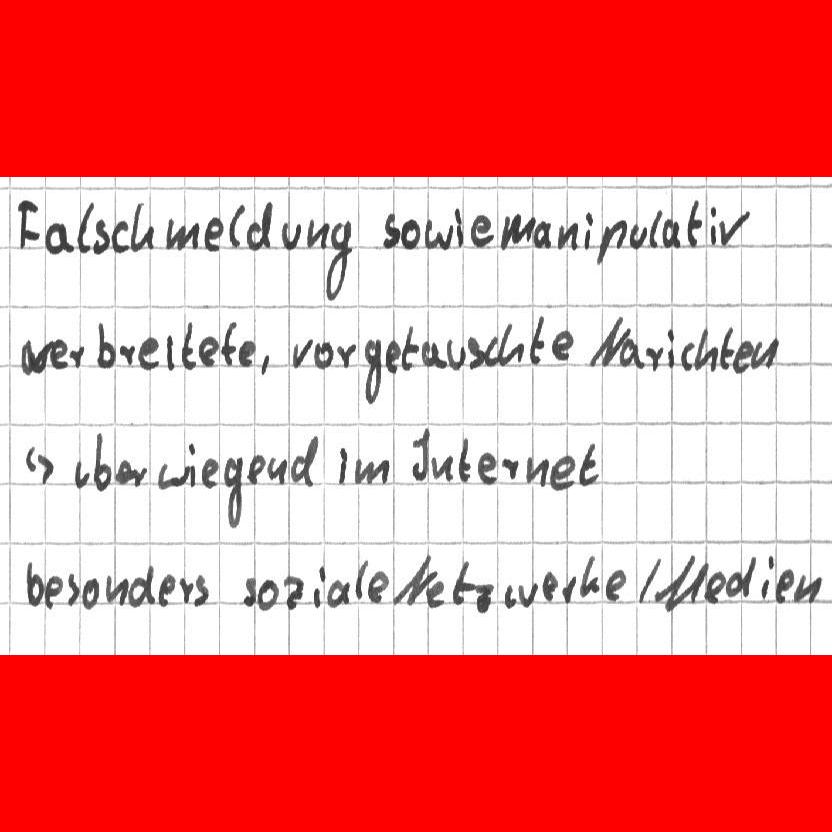 Falschmeldung sowie manipulativ
verbreitete, vorgetauschte Narichten
↳ überwiegend im Internet
besonders soziale Netzwerke / Medien